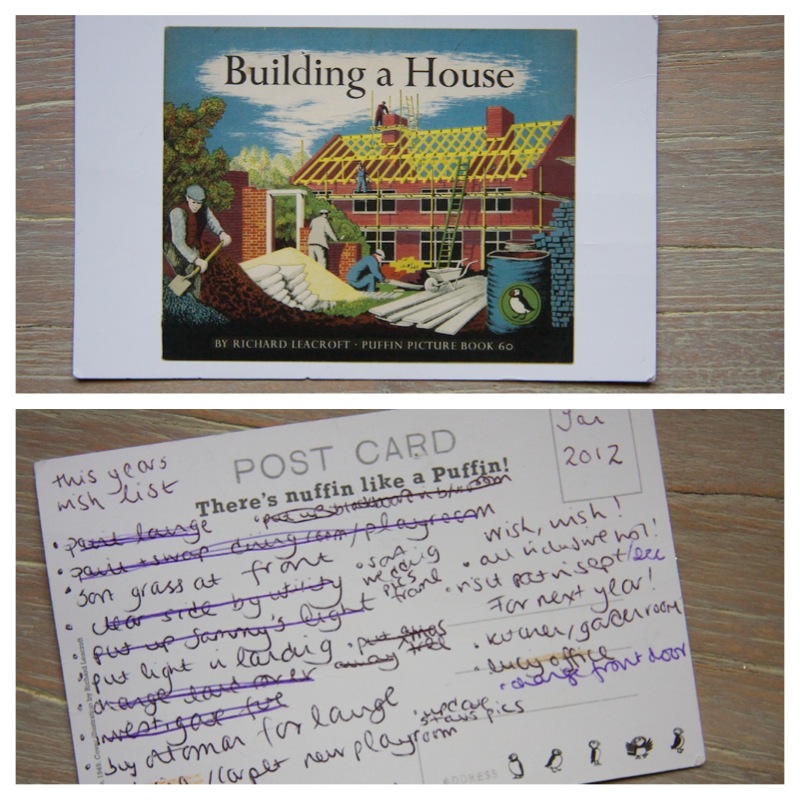 Building a House
BY RICHARD LEACROFT · PUFFIN PICTURE BOOK 60
POST CARD
There's nuffin like a Puffin!
Jan
2012
this years
wish list
· paint lounge
· put up blackboard in
· paint + swap dining room/playroom
· sort grass at front
· clear side by utility
· put up Sammy's light
· put light in landing
· change
· investigate
· buy ottoman for lounge
/carpet new playroom
· sort
wedding
pics
frame
· put xmas
away tree
· update
stairs pics
wish, wish!
· all inclusive hol!
· visit pat in sept/dec
For next year!
· kitchen/gardenroom
· lucy office
· change front door
1945. Cover illustration by Richard Leacroft
ADDRESS